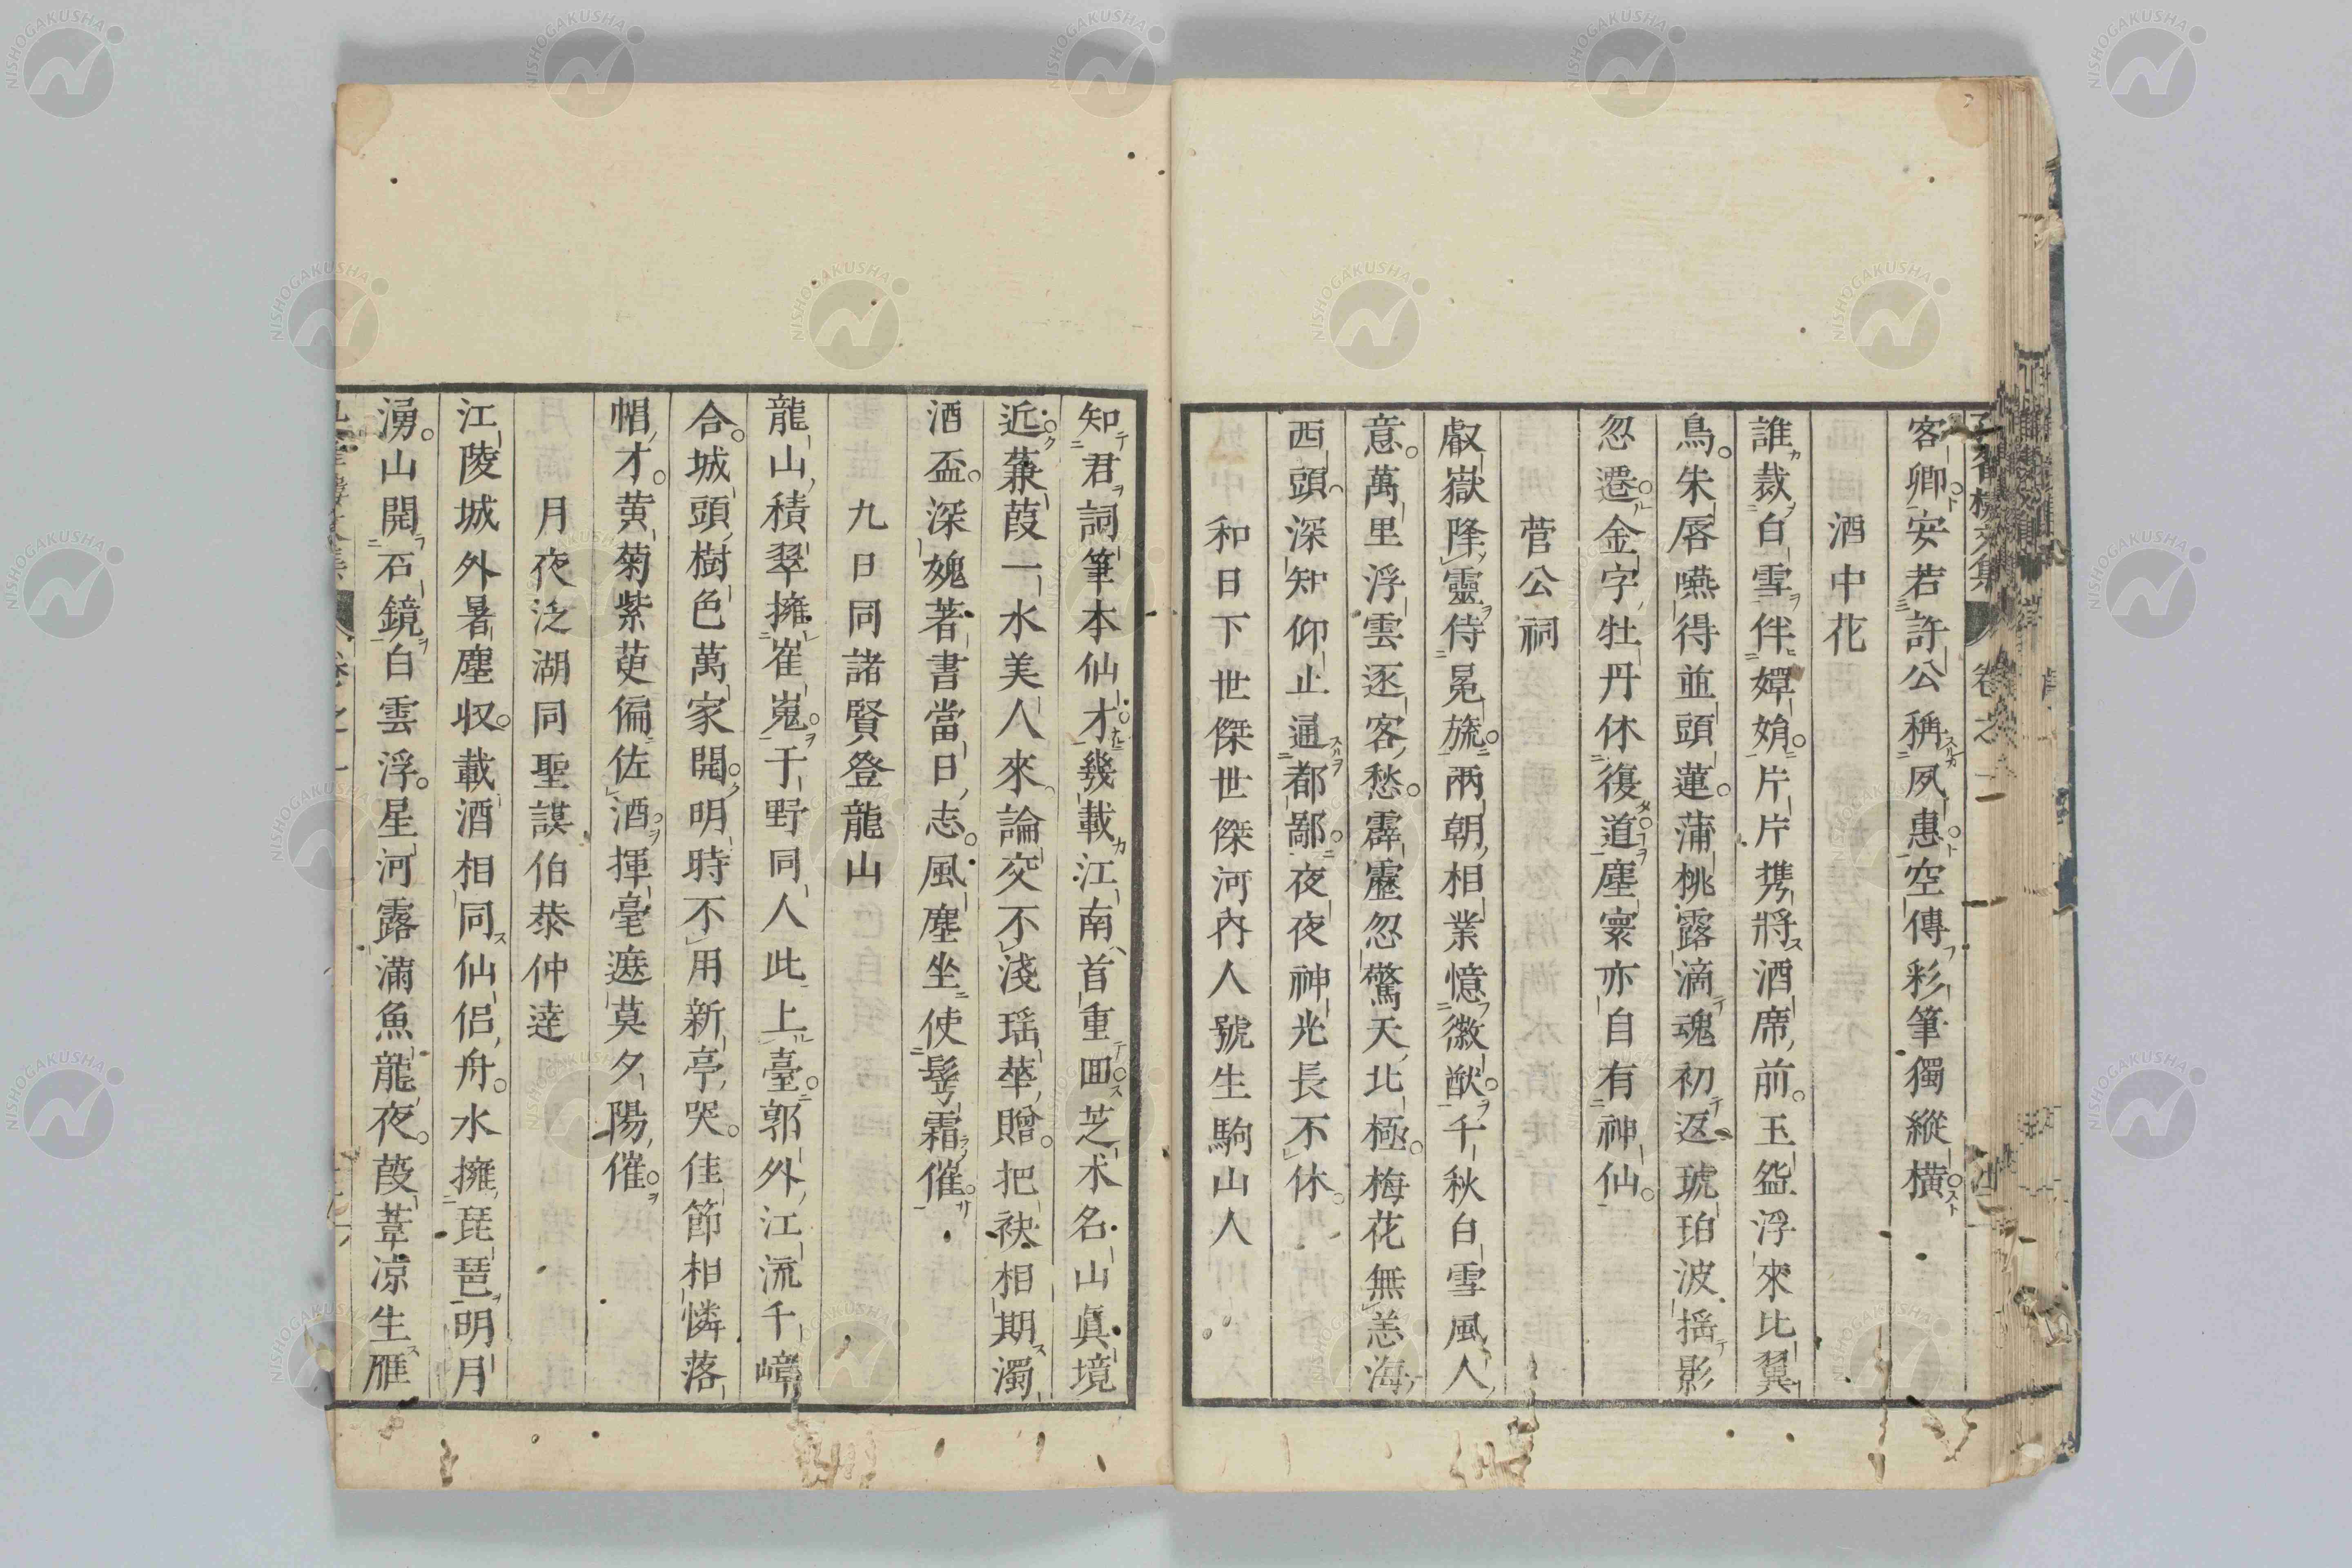 客卿安若許公稱夙惠空傳彩筆獨縱橫
酒中花
誰裁白雪伴嬋娟片片携將酒席前玉盌浮來比翼
鳥朱唇嚥得並頭蓮蒲桃露滴魂初返琥珀波揺影
忽遷金字牡丹休復道塵寰亦自有神仙
菅公祠
叡嶽降靈侍冕旒兩朝相業憶徽猷千秋白雪風人
意萬里浮雲逐客愁霹靂忽驚天北極梅花無恙海
西頭深知仰止通都鄙夜夜神光長不休
和日下世傑世傑河內人號生駒山人
知君詞筆本仙才幾載江南首重囬芝术名山眞境
近蒹葭一水美人來論交不淺瑶華贈把袂相期濁
酒盃深媿著書當日志風塵坐使鬂霜催
九日同諸賢登龍山
龍山積翠擁崔嵬于野同人此上臺郭外江流千嶂
合城頭樹色萬家開明時不用新亭哭佳節相憐落
帽才黃菊紫萸偏佐酒揮毫遮莫夕陽催
月夜泛湖同聖謨伯恭仲達
江陵城外暑塵収載酒相同仙侣舟水擁琵琶明月
湧山開石鏡白雲浮星河露滿魚龍夜葭葦凉生雁